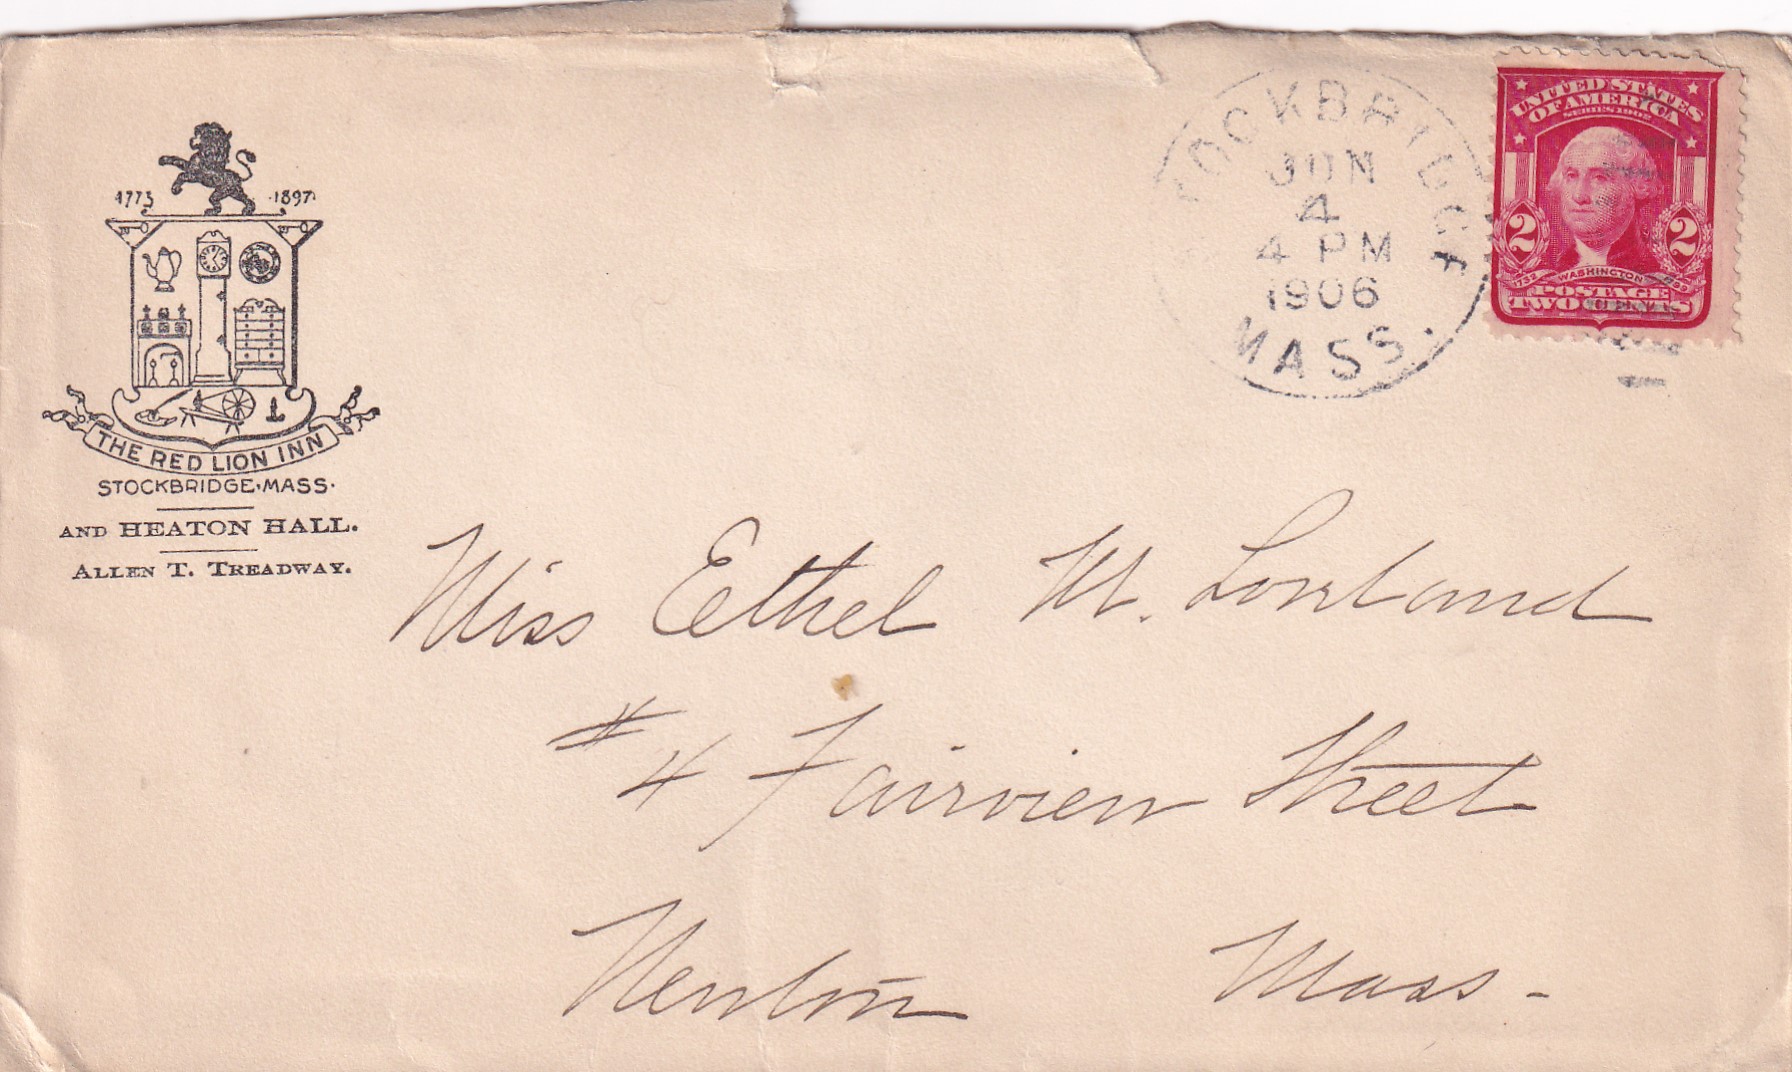 1773 1897
THE RED LION INN
STOCKBRIDGE·MASS·
AND HEATON HALL.
ALLEN T. TREADWAY.
STOCKBRIDGE
JUN
4
4 PM
1906
MASS.
UNITED STATES
OF AMERICA
SERIES 1902
2 2
1732 WASHINGTON 1799
POSTAGE
TWO CENTS
Miss Ethel M.
# 4 Fairview Street
Newton Mass.